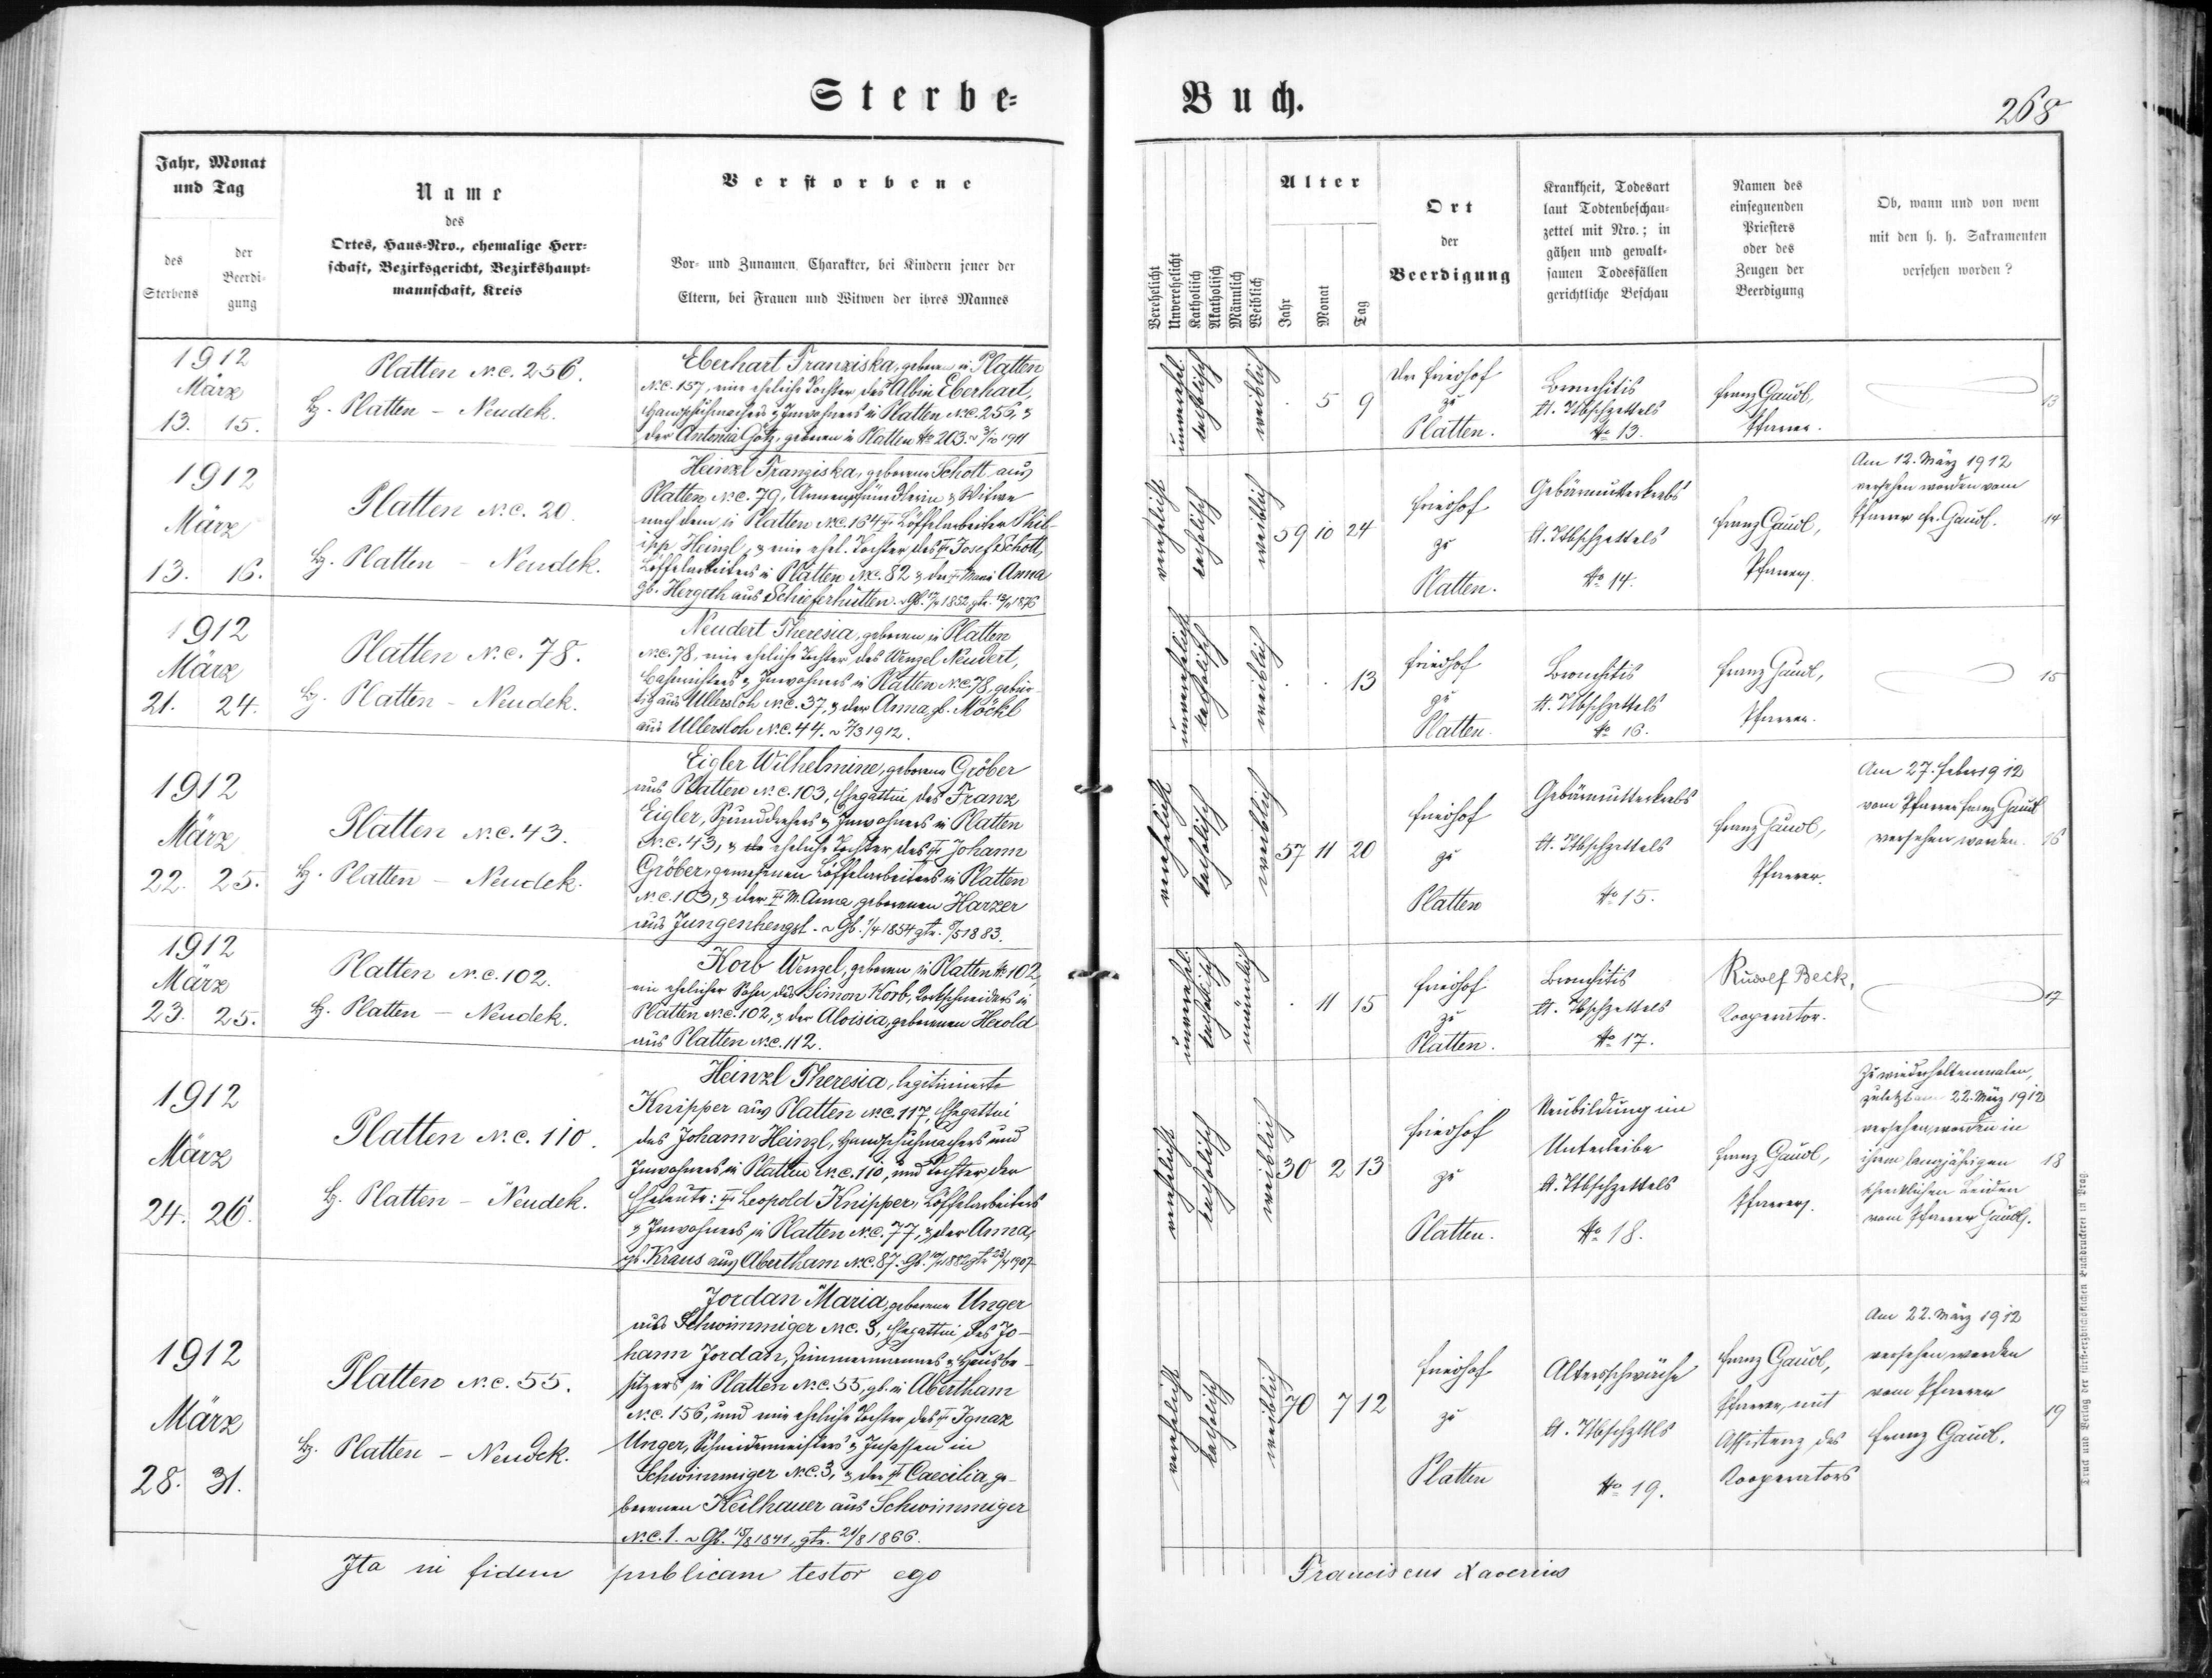 Sterbe-
Buch.
268
Jahr, Monat
und Tag
des
Sterbens
der
Beerdi-
gung
Name
des
Ortes, Haus-Nro., ehemalige Herr-
schaft, Bezirksgericht, Bezirkshaupt-
mannschaft, Kreis
Verstorbene
Vor- und Zunamen, Charakter, bei Kindern jener der
Eltern, bei Frauen und Witwen der ihres Mannes
Verehelicht
Unverehelicht
Katholisch
Akatholisch
Männlich
Weiblich
Alter
Jahr
Monat
Tag
Ort
der
Beerdigung
Krankheit, Todesart
laut Todtenbeschau-
zettel mit Nro.; in
gähen und gewalt-
samen Todesfällen
gerichtliche Beschau
Namen des
einsegnenden
Priesters
oder des
Zeugen der
Beerdigung
Ob, wann und von wem
mit den h. h. Sakramenten
versehen worden?
1912
März
13. 15.
Platten N.C. 256.
Bz. Platten - Neudek.
Eberhart Franziska, geboren in Platten
N.C. 157, eine eheliche Tochter des Albin Eberhart,
Handschuhmachers & Inwohners in Platten N.C. 256, &
der Antonia Götz, geboren in Platten No 203. ~ 3/10 1911
unverehel.
katholisch
weiblich
. 5 9
Der Friedhof
zu
Platten.
Bronchitis
lt. Tbschzettels
No 13.
Franz Gaudl,
Pfarrer.
13
1912
März
13. 16.
Platten N.C. 20.
Bz. Platten - Neudek.
Heinzl Franziska, geborene Schott aus
Platten N.C. 79, Armenpfründlerin & Witwe
nach dem in Platten N.C. 164 † Löffelarbeiter Phil-
ipp Heinzl, & eine ehel. Tochter des † Josef Schott,
Löffelarbeiters in Platten N.C. 82 & der † Marie Anna
gb. Hergeth aus Schieferhütten. ~ Gb. 1852, gtr. 1876
verehelicht
katholisch
weiblich
59 10 24
Friedhof
zu
Platten.
Gebärmutterkrebs
lt. Tbschzettels
No 14.
Franz Gaudl,
Pfarrer.
Am 12. März 1912
versehen worden vom
Pfarrer Fr. Gaudl.
14
1912
März
21. 24.
Platten N.C. 78.
Bz. Platten - Neudek.
Neudert Theresia, geboren in Platten
N.C. 78, eine eheliche Tochter des Wenzel Neudert,
& Inwohners in Platten N.C. 78, gebür-
tig aus Ullersloh N.C. 37, & der Anna gb. Möckl
aus Ullersloh N.C. 44. ~ 7/3 1912.
unverehelicht
katholisch
weiblich
. . 13
Friedhof
zu
Platten.
Bronchitis
lt. Tbschzettels
No 16.
Franz Gaudl,
Pfarrer.
15
1912
März
22. 25.
Platten N.C. 43.
Bz. Platten - Neudek.
Eigler Wilhelmine, geborene Gröber
aus Platten N.C. 103, Ehegattin des Franz
Eigler, Spunddrehers & Inwohners in Platten
N.C. 43, & eheliche Tochter des † Johann
Gröber, gewesenen Löffelarbeiters in Platten
N.C. 103, & der † M. Anna geborenen Harzer
aus Jungenhengst. ~ Gb. 1/4 1854 gtr. 8/5 1883.
verehelicht
katholisch
weiblich
57 11 20
Friedhof
zu
Platten
Gebärmutterkrebs
lt. Tbschzettels
No 15.
Franz Gaudl,
Pfarrer.
Am 27. Feber 1912
vom Pfarrer Franz Gaudl
versehen worden.
16
1912
März
23. 25.
Platten N.C. 102.
Bz. Platten - Neudek.
Korb Wenzel, geboren in Platten No 102,
ein ehelicher Sohn des Simon Korb, Korkschneiders in
Platten N.C. 102, & der Aloisia, geborenen Herold
aus Platten N.C. 112.
unverehel.
katholisch
männlich
. 11 15
Friedhof
zu
Platten.
Bronchitis
lt. Tbschzettels
No 17.
Rudolf Beck,
Kooperator.
17
1912
März
24. 26.
Platten N.C. 110.
Bz. Platten - Neudek.
Heinzl Theresia, legitimierte
Knipper aus Platten N.C. 117, Ehegattin
des Johann Heinzl, Handschuhmachers und
Inwohners in Platten N.C. 110, und Tochter der
Eheleute: † Leopold Knipper, Löffelarbeiters
& Inwohners in Platten N.C. 77, & der Anna,
gb. Kraus aus Abertham N.C. 87. Gb. 1882 gtr. 1907
verehelicht
katholisch
weiblich
30 2 13
Friedhof
zu
Platten.
Neubildung im
Unterleibe
lt. Tbschzettels
No 18.
Franz Gaudl,
Pfarrer.
Zu wiederholtenmalen,
zuletzt am 22. März 1912
versehen worden in
ihrem langjährigen
schrecklichen Leiden
vom Pfarrer Gaudl.
18
1912
März
28. 31.
Platten N.C. 55.
Bz. Platten - Neudek.
Jordan Maria, geborene Unger
aus Schwimmiger N.C. 3, Ehegattin des Jo-
hann Jordan, Zimmermannes & Hausbe-
sitzers in Platten N.C. 55, gb. in Abertham
N.C. 156, und eine eheliche Tochter des † Ignaz
Unger, Schneidermeisters & Insassen in
Schwimmiger N.C. 3, & der † Caecilia ge-
borenen Keilhauer aus Schwimmiger
N.C. 1. ~ Gb. 15/8 1841, gtr. 21/8 1866.
verehelicht
katholisch
weiblich
70 7 12
Friedhof
zu
Platten
Altersschwäche
lt. Tbschzttls
No 19.
Franz Gaudl,
Pfarrer, mit
Assistenz des
Kooperators
Am 22. März 1912
versehen worden
vom Pfarrer
Franz Gaudl.
19
Ita in fidem publicam testor ego
Franciscus Xaverius
Druck und Verlag der fürst-erzbischöflichen Buchdruckerei in Prag